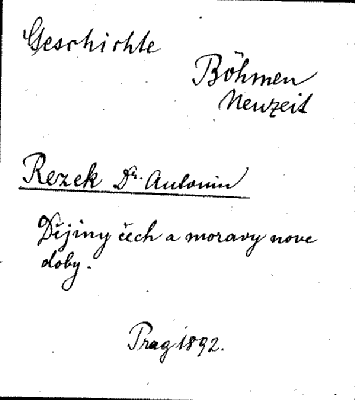 Geschichte
Böhmen
Neuzeit
Rezek Dr. Antonin
Dějiny čech a moravy nove
doby.
Prag 1892.